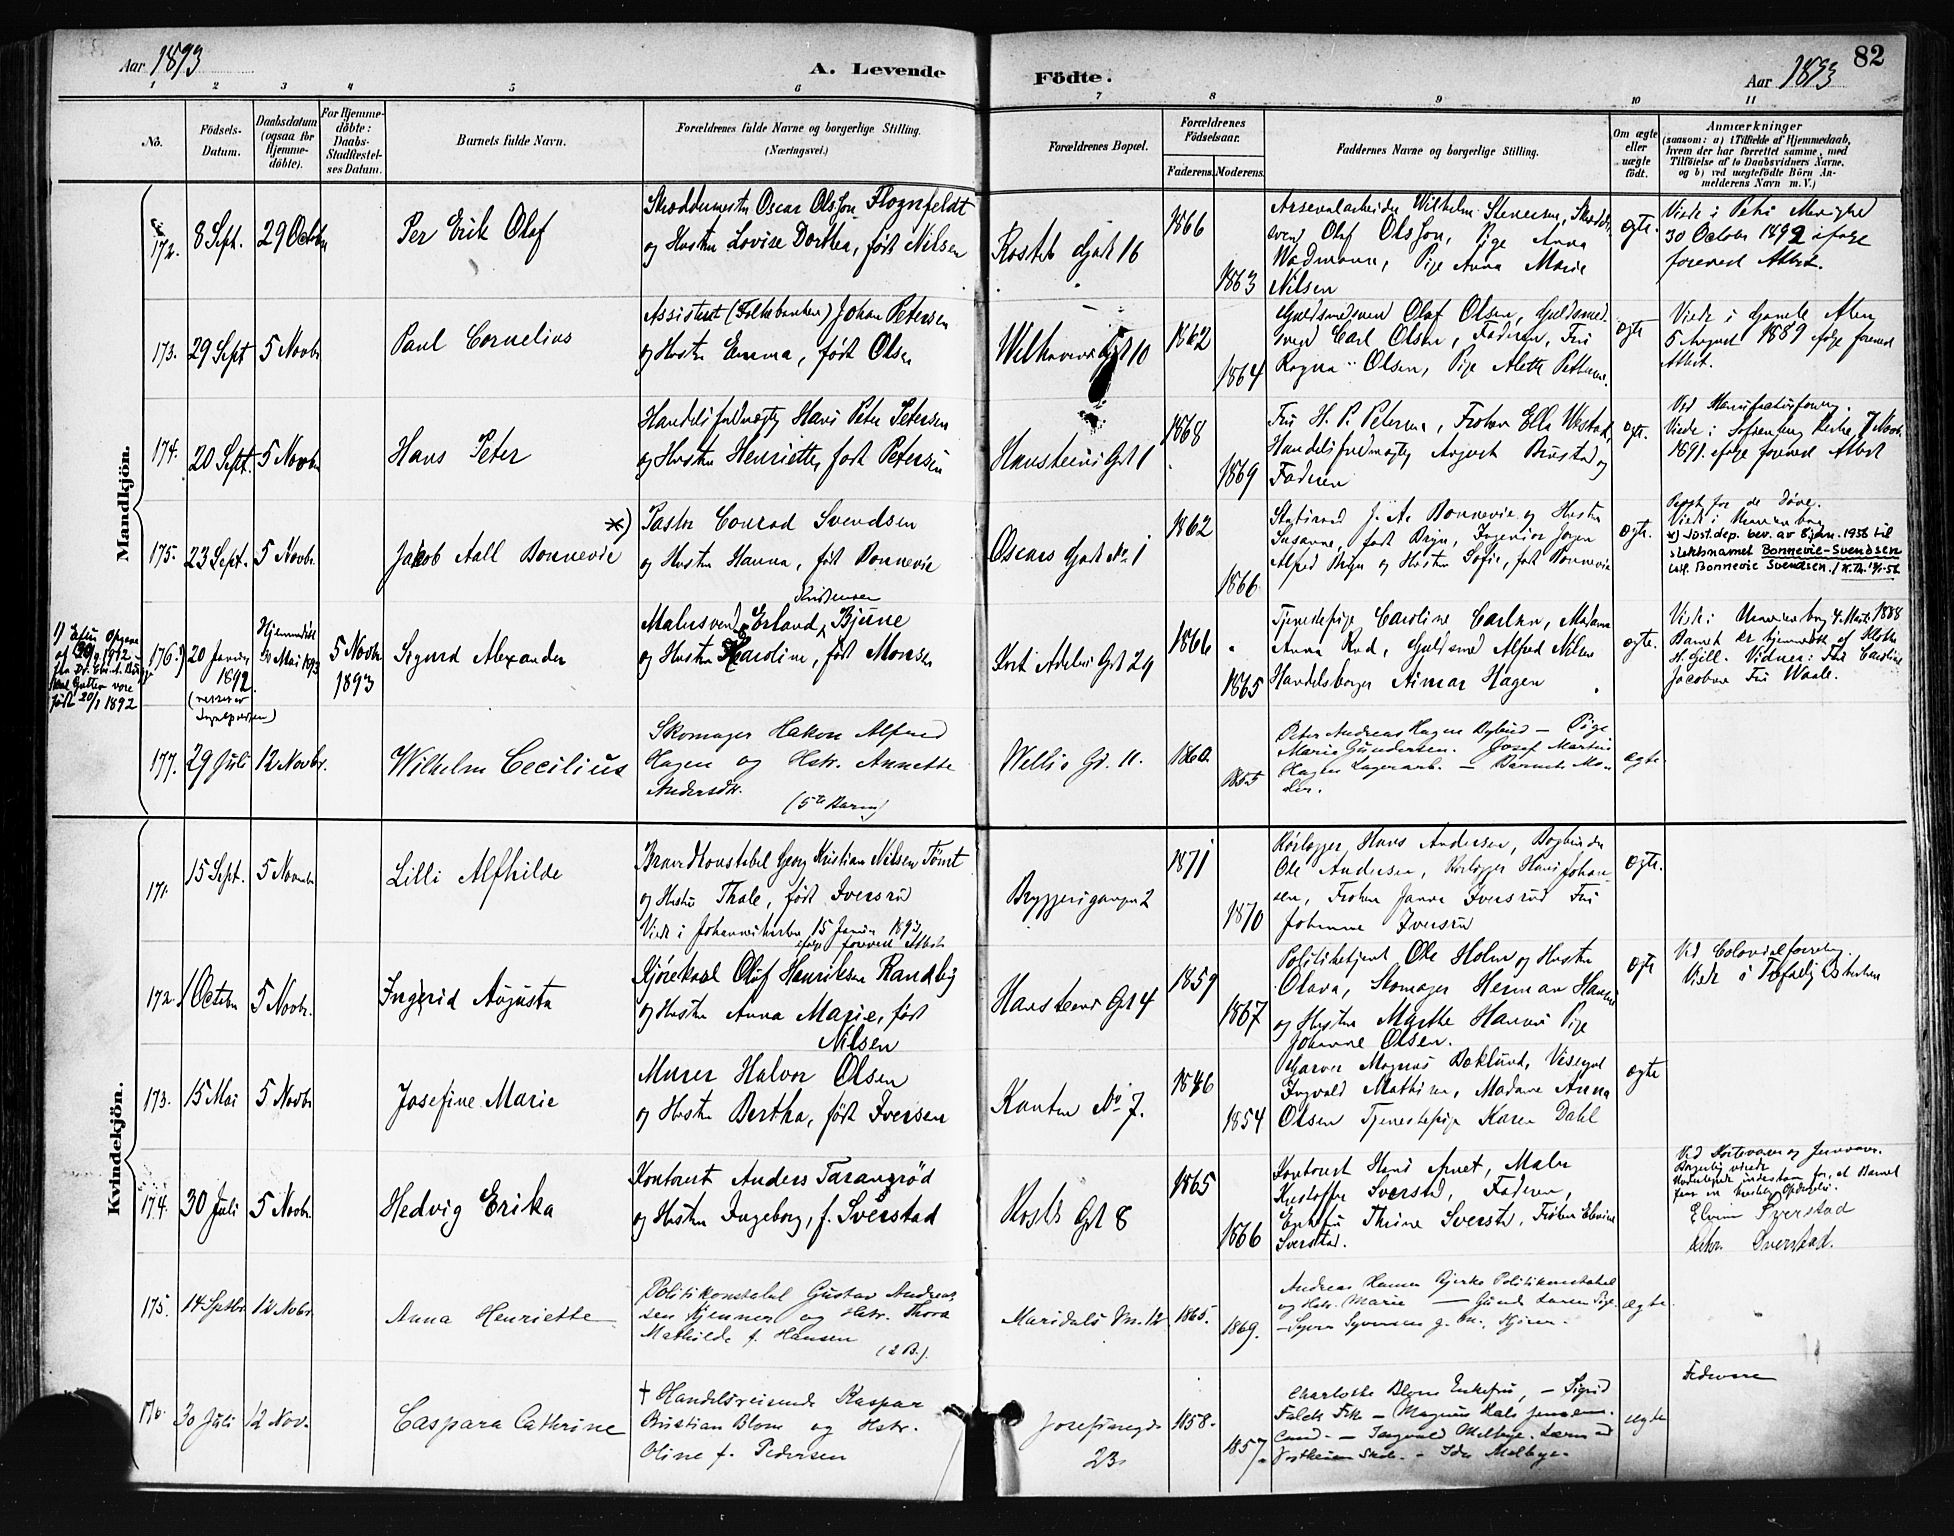 Aar 1893
A. Levende
Födte.
Aar 1893
82
1 2 3 4 5 6 7 8 9 10 11
No.
Födsels-
Datum.
Daabsdatum
(ogsaa for
Hjemme-
döbte).
For Hjemme-
döbte:
Daabs-
Stadfæstel-
ses Datum.
Barnets fulde Navn.
Forældrenes fulde Navne og borgerlige Stilling.
(Næringsvei.)
Forældrenes Bopæl.
Forældrenes
Födselsaar.
Faderens.
Moderens.
Faddernes Navne og borgerlige Stilling.
Om ægte
eller
uægte
födt.
Anmærkninger
(saasom: a) i Tilfælde af Hjemmedaab,
hvem der har forrettet samme, med
Tilföielse af to Daabsvidners Navne,
og b) ved uægtefödte Börn An-
melderens Navn m. V.)
Mandkjön.
172. 8 Sept. 29 Octbr
Per Erik Olaf
Skræddermester Oscar Olsson Flognfeldt
og Hustru Lovise Dorthea, født Nilsen
Rosteds Gade 16
1866
1863
Arsenalarbeider Wilhelm Stenersen, Skrædder-
svend Olaf Olsson, Pige Anna
Wadmann, Pige Anna Marie
Nilsen
ægte.
Viede i Petri Menighed
30 October 1892 ifølge
forevist Attest.
173. 29 Sept 5 Novbr
Paul Cornelius
Assistent (Folkebanken) Johan Petersen
og Hustru Emma, født Olsen
Welhavens Gade 10
1862
1864
Guldsmedsvend Olaf Olsen, Guldsmed-
svend Carl Olsen, Faderen, Fru
Ragna Olsen, Pige Alette Pettersen.
ægte
Viede i Gamle Aker
5 August 1889 ifølge forevist
Attest.
174. 20 Sept. 5 Novbr
Hans Peter
Handelsfuldmægtig Hans Peter Petersen
og Hustru Henriette, født Petersen
Hansteens Gade 1
1868
1869
Fru H. P. Petersen, Frøken Ella Westad,
Handelsfuldmægtig August Brustad og
Faderen
ægte.
Ved Manufacturforretning.
Viede i Sofienberg Kirke 7 Novbr.
1891 ifølge forevist Attest
175. 23 Sept. 5 Novbr.
*)
Jakob Aall Bonnevie
Pastor Conrad Svendsen
og Hustru Hanna, født Bonnevie
Oscars Gade No. 1
1862
1866
Statsraad J. A. Bonnevie og Hustru
Susanne, født Bryn, Ingeniør Jørgen
Alfred Bryn og Hustru Sofie, født Bonnevie
ægte.
Præst for de Døve.
Viede i Uranienborg
*) Just.dep. bev. av 5 jan. 1956 til
slektsnavnet Bonnevie-Svendsen
176. 1) 20 Januar
1892.
Hjemmedøbt
Mai 1893
5 Novbr
1893
Sigurd Alexander
Kristensen
Malersvend Erland Bjune
og Hustru Karoline, født Monsen
Cort Adelers Gade 24
1866
1865
Tjenestepige Caroline Carlsen, Madame
Anna Rud, Guldsmed Alfred Nilsen
Handelsborger Aimar Hagen
ægte.
Viede i Uranienborg 4 Marts 1888
Barnet er hjemmedøbt af Klokker
H. Gill. Vidner: Fru Caroline
Jacobsen Fru Waale.
født 20/1 1892
177. 29 Juli 12 Novbr.
Wilhelm Cecilius
Skomager Hakon Alfred
Hagen og Hstr. Annette
Andersdtr.
(5te Barn)
1860.
1855
Peter Andreas Hagen Bylund — Pige
Marie Gundersen. Josef Martin
Hagen Lagerarb. — Barnets Mo-
der.
ægte
Kvindekjön.
171. 15 Sept. 5 Novembr
Lilli Alfhilde
Brandkonstabel Georg Kristian Nilsen Tømt
og Hustru Thale, født Iversrud
Viede i Johanneskirken 15 Januar 1893
ifølge forevist Attest
Bryggerigangen 2
1871
1870
Rørlægger Hans Andersen, Bogbinder
Ole Andersen, Rørlægger Hans Johan-
sen, Frøken Janna Iversrud Fru
Johanne Iversrud
ægte.
172. 1 October 5 Novbr.
Ingerid Augusta
Kjørekarl Oluf Henriksen Randby
og Hustru Anna Marie, født
Nilsen
Hansteens Gade 4
1859
1867
Politibetjent Ole Holm og Hustru
Olava, Skomager Herman Hansen
og Hustru Marthe Hansen Pige
Johanne Olsen.
ægte
Ved Colonialforretning
Viede i Trefoldighedskirken
173. 15 Mai 5 Novbr
Josefine Marie
Murer Halvor Olsen
og Hustru Bertha, født Iversen
Kanten No. 7.
1846
1854
Garver Magnus Beklund, Visergut
Ingvald Mathisen, Madame Anna
Olsen Tjenestepige Karen Dahl
ægte
174. 30 Juli 5 Novbr.
Hedvig Erika
Kontorist Anders Tarangrød
og Hustru Ingeborg, f. Sverstad
Holts Gade 8
1865
1866
Kontorist Hans Arnet, Maler
Kristoffer Sverstad, Faderen,
Enkefru Thrine Sverstad, Frøken Elevine
Sverstad.
Borgerlig viede
Sverstad
Sverstad.
175. 14 Septbr. 12 Novbr.
Anna Henriette
Politikonstabel Gustav Andreas-
sen Kjenner og Hstr. Thora
Mathilde f. Hansen
(2 B.).
Maridals V. 12
1865.
1869.
Andreas Hansen Bjerke Politikonstabel
og Hstr. Marie — Gunda Larsen Pige.
ægte.
176. 30 Juli 12 Nov.
Caspara Cathrine
† Handelsreisende Kaspar
Kristian Blom og Hstr.
Oline f. Pedersen
Josefinegade
23.
1858.
1857.
Charlotte Blom Enkefru, — Sigrid
Falck Frk — Magnus Hals Jensen
Cand. — Ingvald Melbye Lærer ved
Skole. — Ida Melbye.
ægte